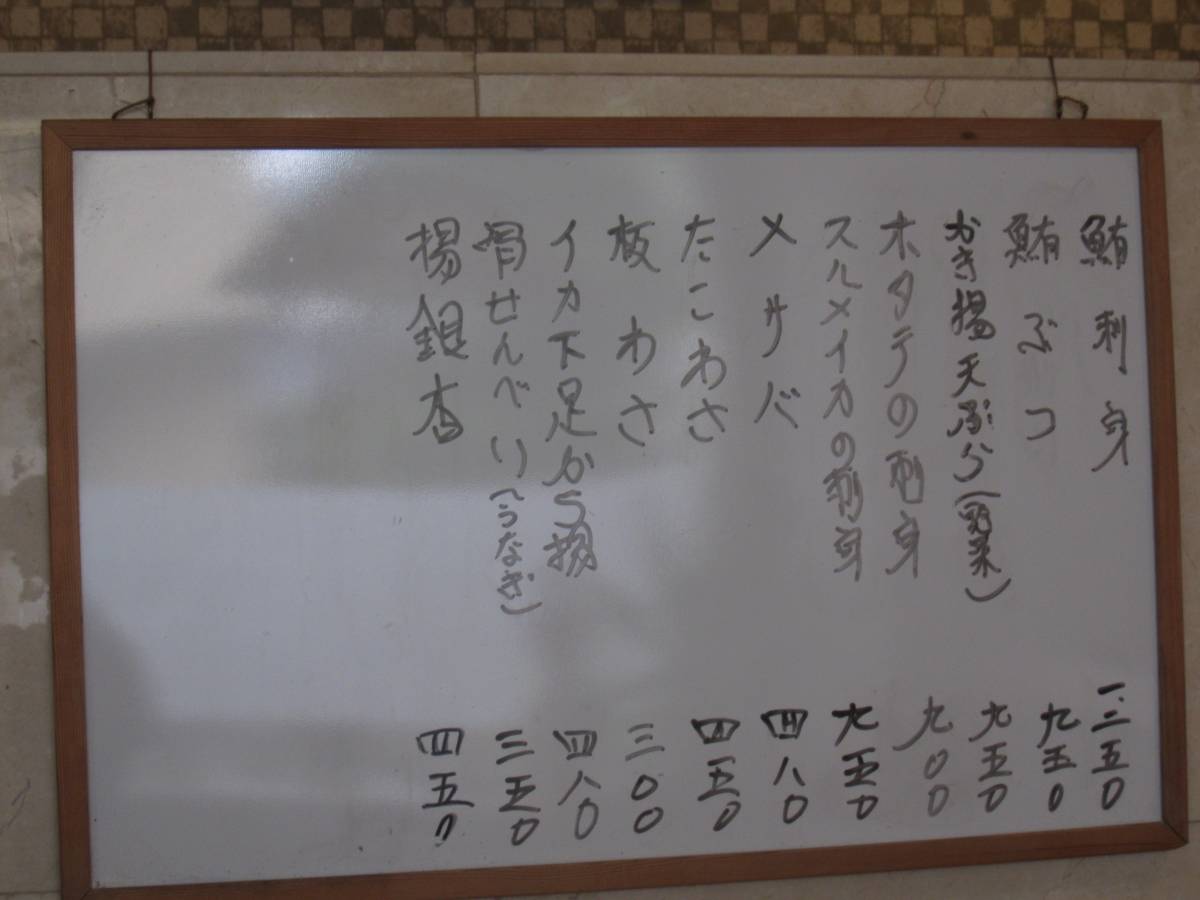 鮪刺身 一.二五〇
鮪ぶつ 九五〇
かき揚天ぷら(野菜) 九五〇
ホタテの刺身 九〇〇
スルメイカの刺身 九五〇
〆サバ 四八〇
たこわさ 四五〇
板わさ 三〇〇
イカ下足から揚 四八〇
骨せんべい(うなぎ) 三五〇
揚銀杏 四五〇